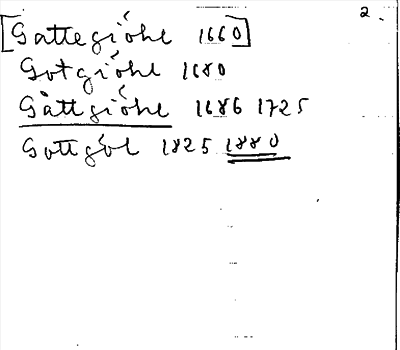 2.
[Gattegióhl 1660]
Gotgióhl 1680
Gåttgióhl 1686 1725
Gottgól 1825 1880